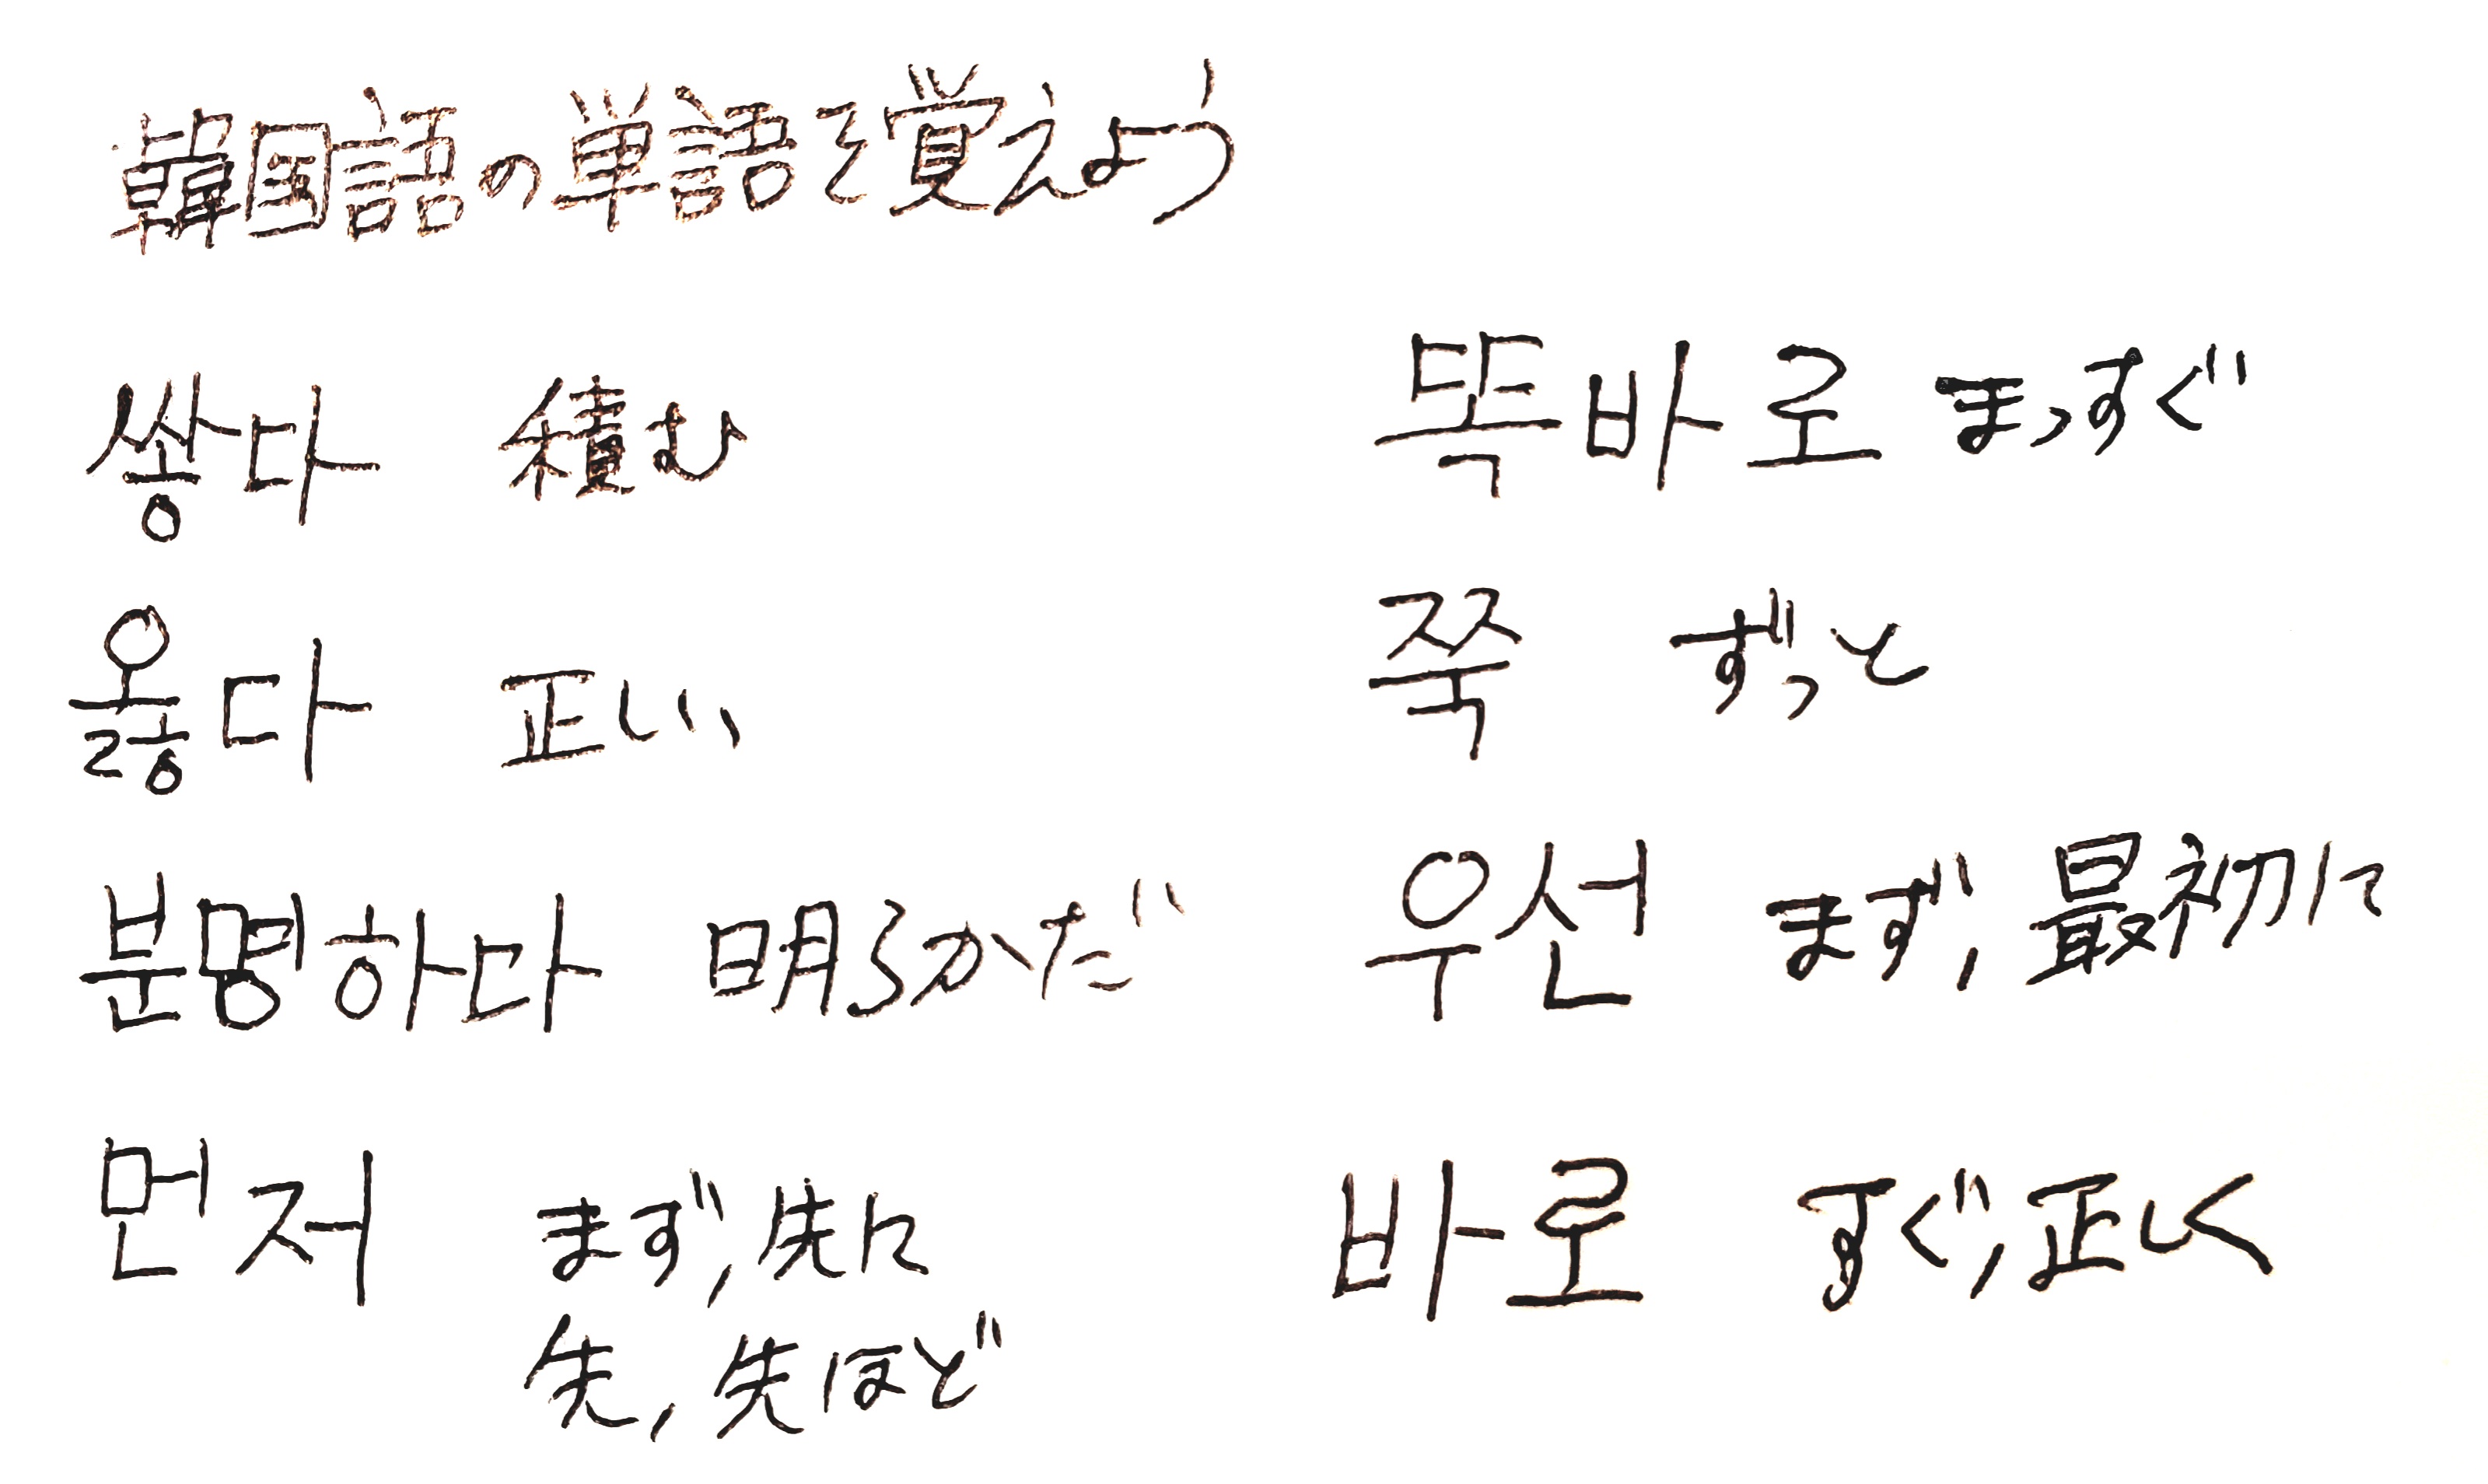 韓国語の単語を覚えよう
쌓다 積む
옳다 正しい
분명하다 明らかだ
먼저 まず,先に
先,先ほど
똑바로 まっすぐ
쭉 ずっと
우선 まず,最初に
바로 すぐ,正しく